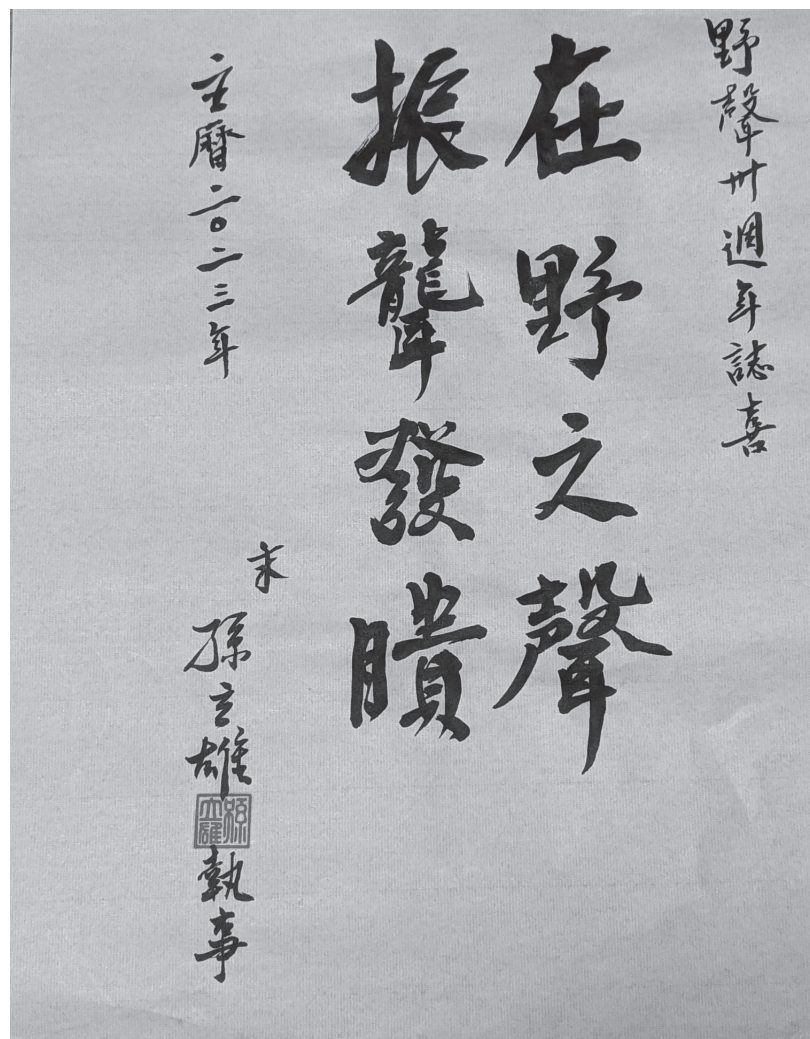 野聲卅週年誌喜
在野之聲
振聾發聵
主曆二〇二三年
末
孫立雄
執事
孫立雄